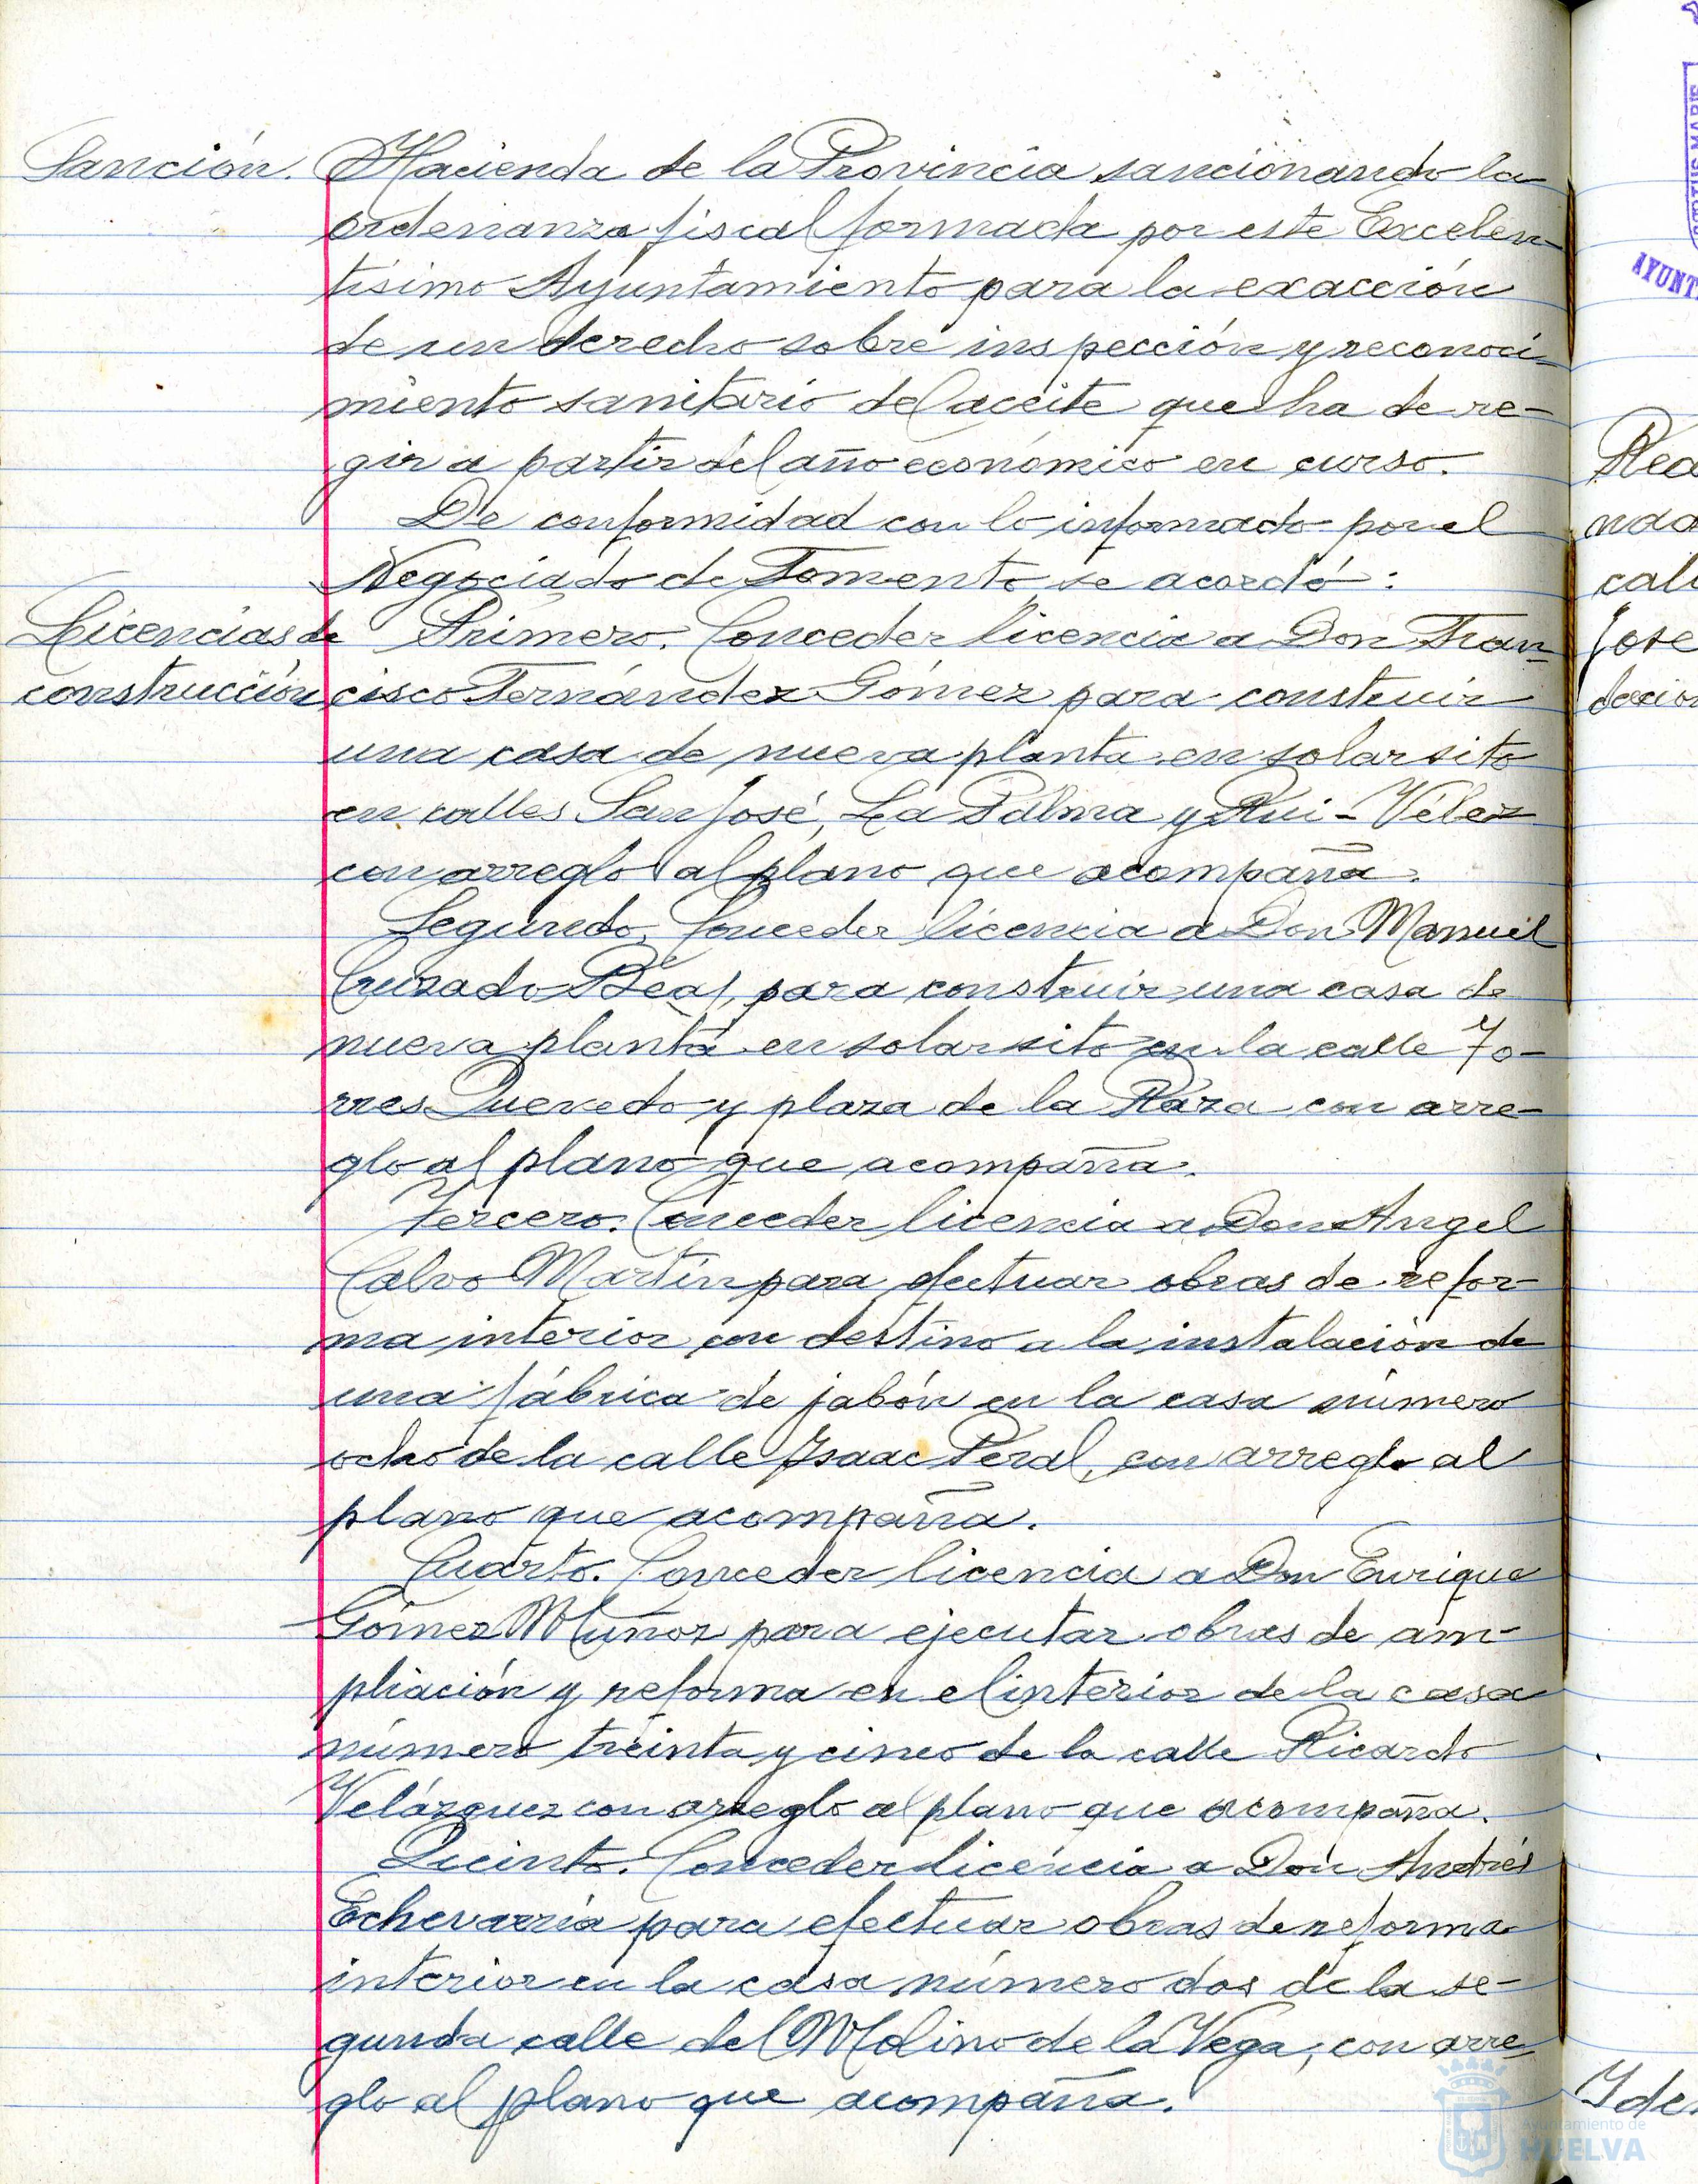 Sanción.
Hacienda de la Provincia sancionando la
ordenanza fiscal formada por este Excelen-
tísimo Ayuntamiento para la exacción
de un derecho sobre inspección y reconoci-
miento sanitario del aceite que ha de re-
gir a partir del año económico en curso.
De conformidad con lo informado por el
Negociado de Fomento se acordó:
Licencias de
construcción
Primero. Conceder licencia a Don Fran-
cisco Fernández Gómez para construir
una casa de nueva planta en solar sito
en calles San José, La Palma y Rui-Vélez
con arreglo al plano que acompaña.
Segundo. Conceder licencia a Don Manuel
Cruzado Béas, para construir una casa de
nueva planta en solar sito en la calle To-
rres Quevedo y plaza de la Raza con arre-
glo al plano que acompaña.
Tercero. Conceder licencia a Don Angel
Calvo Martín para efectuar obras de refor-
ma interior con destino a la instalación de
una fábrica de jabón en la casa número
ocho de la calle Isaac Peral, con arreglo al
plano que acompaña.
Cuarto. Conceder licencia a Don Enrique
Gómez Muñoz para ejecutar obras de am-
pliación y reforma en el interior de la casa
número treinta y cinco de la calle Ricardo
Velázquez con arreglo al plano que acompaña.
Quinto. Conceder licencia a Don Andrés
Echevarría para efectuar obras de reforma
interior en la casa número dos de la se-
gunda calle del Molino de la Vega, con arre-
glo al plano que acompaña.
AYUNT
Ayuntamiento de
HUELVA